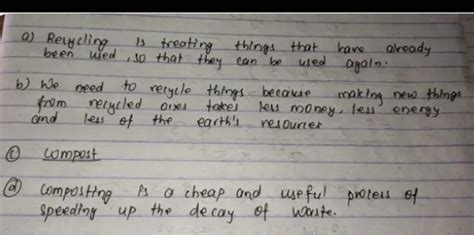 a) Recycling is treating things that have already
been used, so that they can be used again.
b) We need to recycle things because making new things
from recycled ones takes less money, less energy
and less of the earth's resources
c) compost
d) composting is a cheap and useful process of
speeding up the decay of waste.